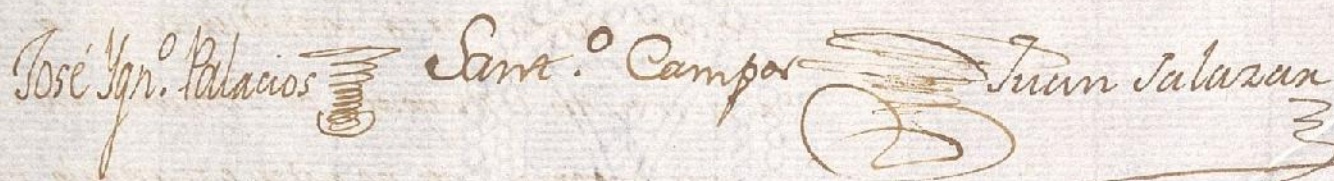 José Ygn.º Palacios Sant.º Campos Juan Salazar